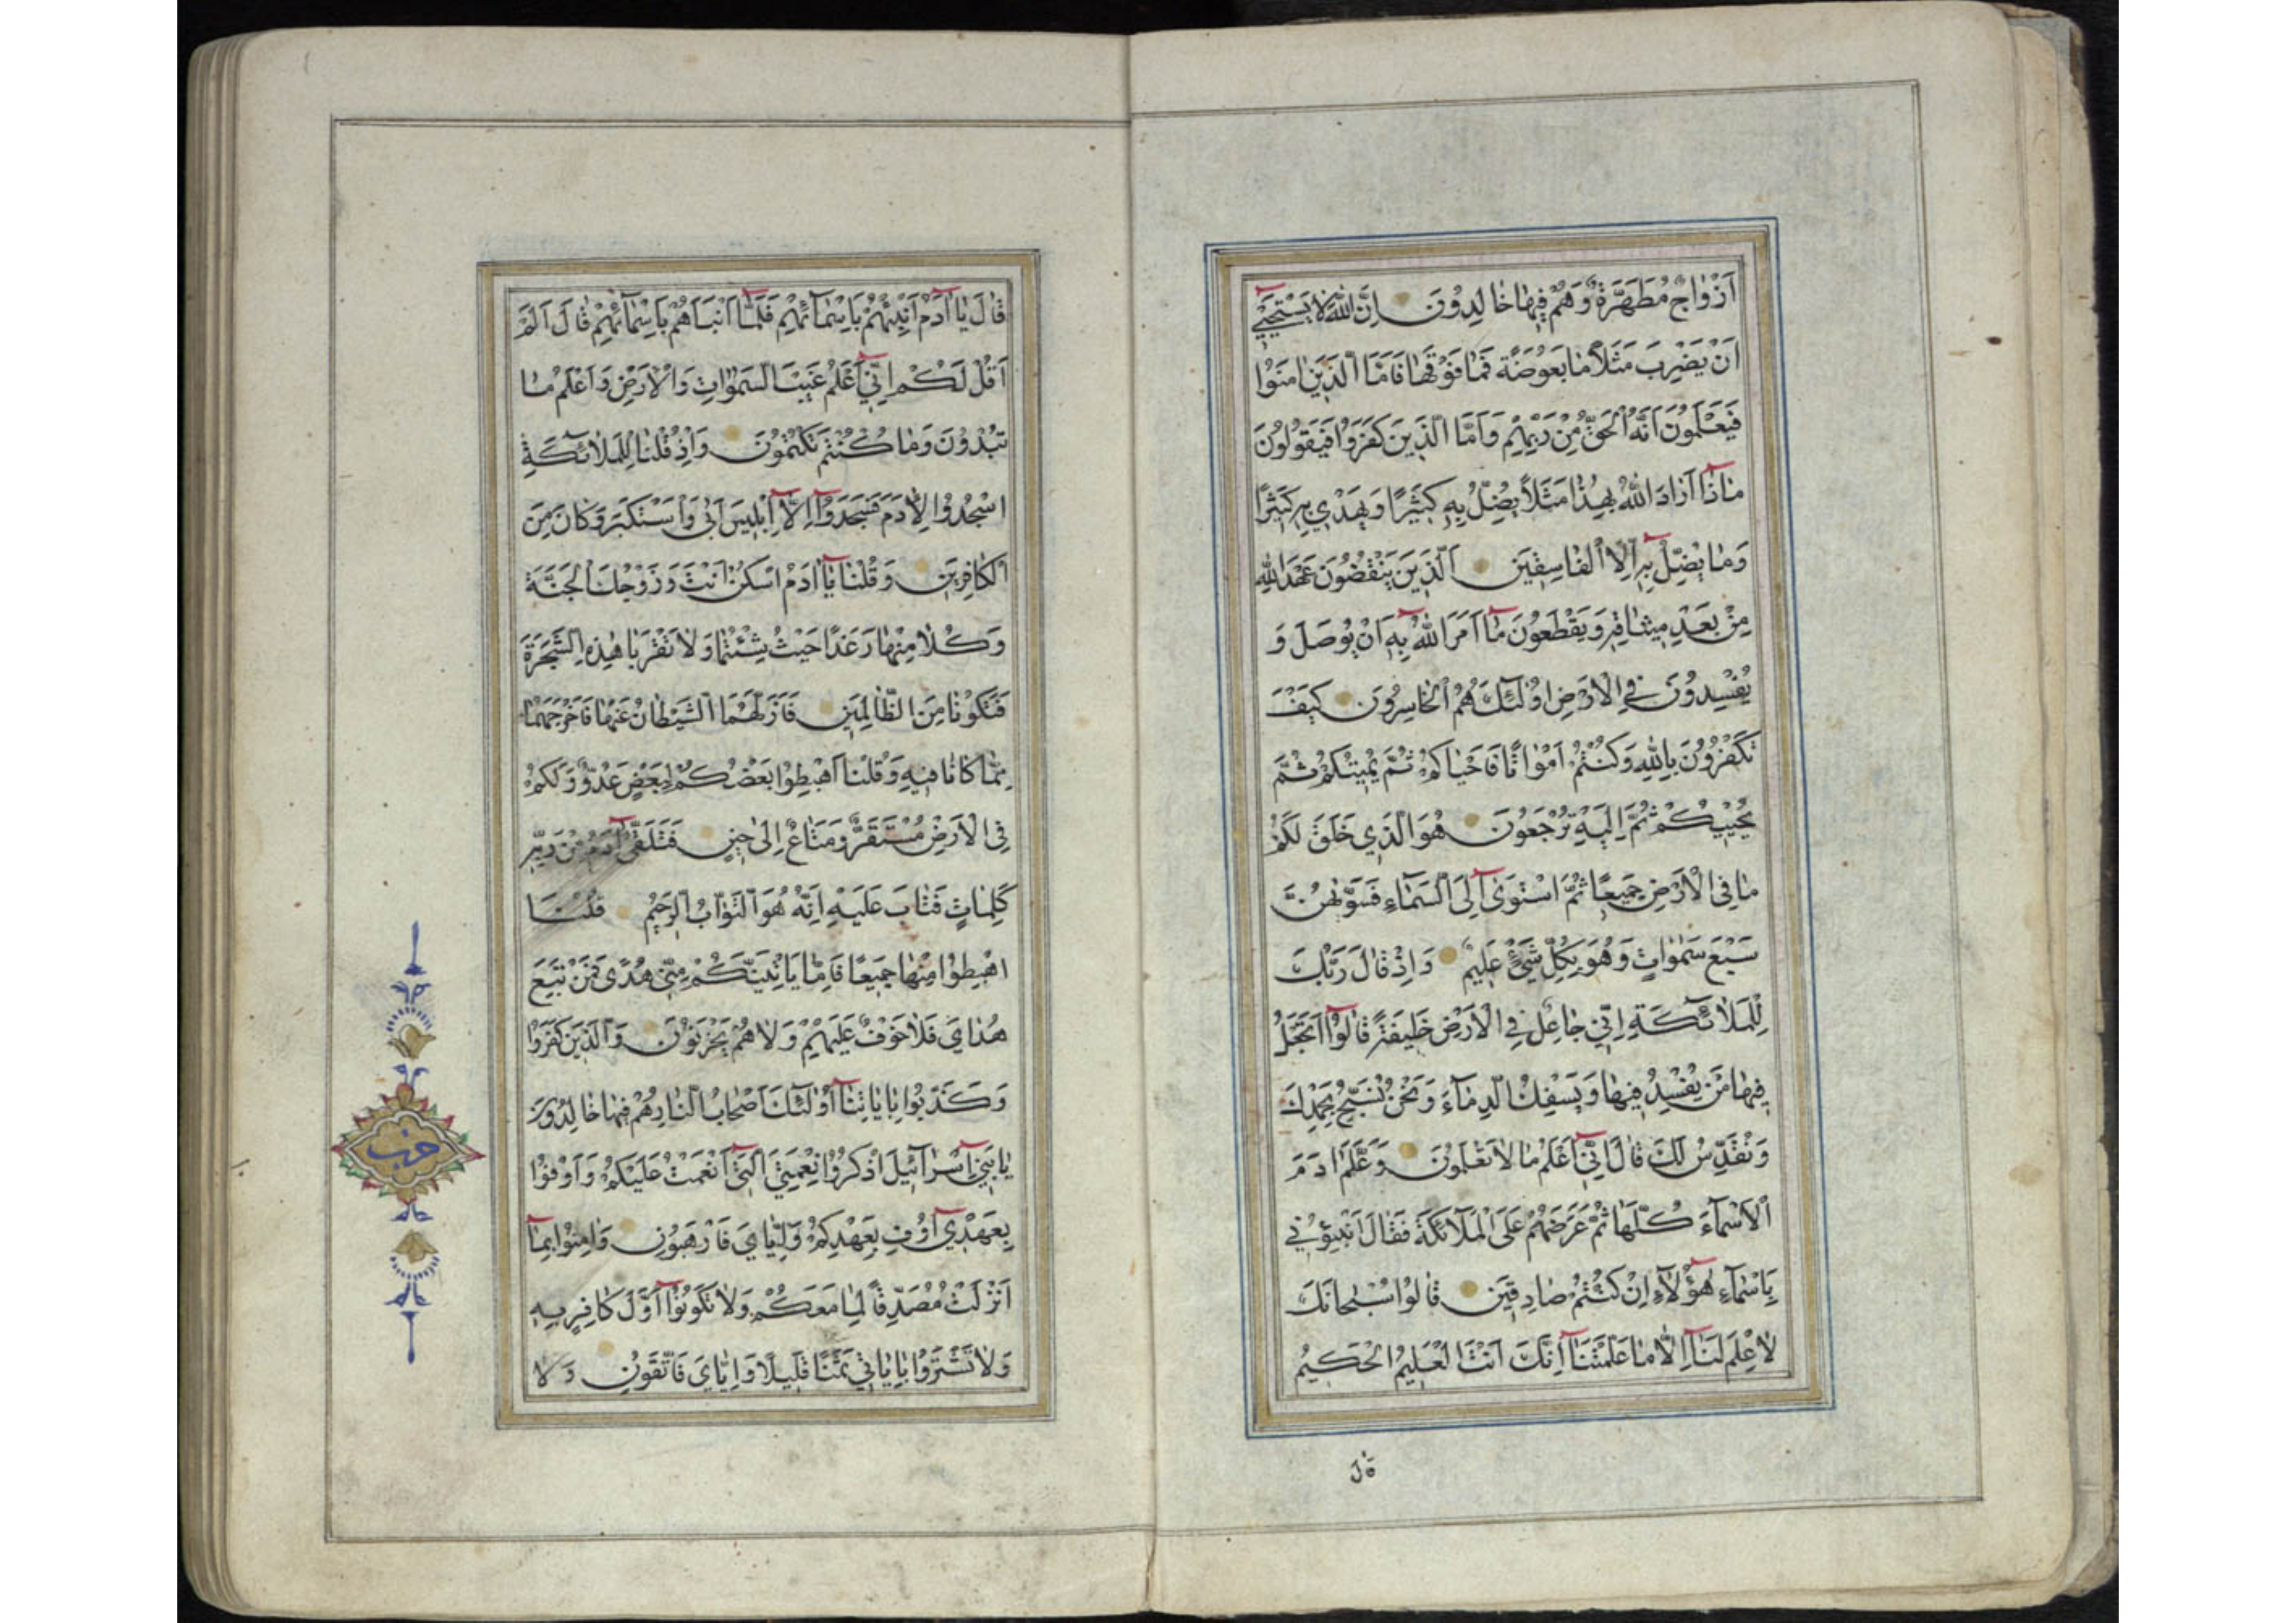 اَزْوٰاجٌ مُطَهَّرَةٌ وَهُمْ فِيهٰا خٰالِدُونَ اِنَّ اللّٰهَ لٰا يَسْتَحْيٖي
اَنْ يَضْرِبَ مَثَلًا مٰا بَعُوضَةً فَمٰا فَوْقَهٰا فَاَمَّا الَّذِينَ اٰمَنُوا
فَيَعْلَمُونَ اَنَّهُ الْحَقُّ مِنْ رَبِّهِمْ وَاَمَّا الَّذِينَ كَفَرُوا فَيَقُولُونَ
مٰاذٰٓا اَرٰادَ اللّٰهُ بِهٰذٰا مَثَلًا يُضِلُّ بِهِ كَثِيرًا وَيَهْدِي بِهِ كَثِيرًا
وَمٰا يُضِلُّ بِهٖٓ اِلَّا الْفٰاسِقِينَ اَلَّذِينَ يَنْقُضُونَ عَهْدَ اللّٰهِ
مِنْ بَعْدِ مِيثٰاقِهِ وَيَقْطَعُونَ مٰٓا اَمَرَ اللّٰهُ بِهٖٓ اَنْ يُوصَلَ وَ
يُفْسِدُونَ فِي الْاَرْضِ اُولٰئِكَ هُمُ الْخٰاسِرُونَ كَيْفَ
تَكْفُرُونَ بِاللّٰهِ وَكُنْتُمْ اَمْوٰاتًا فَاَحْيٰاكُمْ ثُمَّ يُمِيتُكُمْ ثُمَّ
يُحْيِيكُمْ ثُمَّ اِلَيْهِ تُرْجَعُونَ هُوَ الَّذِي خَلَقَ لَكُمْ
مٰا فِي الْاَرْضِ جَمِيعًا ثُمَّ اسْتَوٰىٓ اِلَى السَّمٰاءِ فَسَوّٰيهُنَّ
سَبْعَ سَمٰوٰاتٍ وَهُوَ بِكُلِّ شَيْءٍ عَلِيمٌ وَاِذْ قٰالَ رَبُّكَ
لِلْمَلٰائِكَةِ اِنِّي جٰاعِلٌ فِي الْاَرْضِ خَلِيفَةً قٰالُوٓا اَتَجْعَلُ
فِيهٰا مَنْ يُفْسِدُ فِيهٰا وَيَسْفِكُ الدِّمٰاءَ وَنَحْنُ نُسَبِّحُ بِحَمْدِكَ
وَنُقَدِّسُ لَكَ قٰالَ اِنِّٓي اَعْلَمُ مٰا لٰا تَعْلَمُونَ وَعَلَّمَ اٰدَمَ
الْاَسْمٰاءَ كُلَّهٰا ثُمَّ عَرَضَهُمْ عَلَى الْمَلٰائِكَةِ فَقٰالَ اَنْبِئُونِي
بِاَسْمٰاءِ هٰٓؤُلٰاءِ اِنْ كُنْتُمْ صٰادِقِينَ قٰالُوا سُبْحٰانَكَ
لٰا عِلْمَ لَنٰٓا اِلّٰا مٰا عَلَّمْتَنٰٓا اِنَّكَ اَنْتَ الْعَلِيمُ الْحَكِيمُ
قٰالَ
قٰالَ يٰٓا اٰدَمُ اَنْبِئْهُمْ بِاَسْمٰائِهِمْ فَلَمّٰٓا اَنْبَاَهُمْ بِاَسْمٰائِهِمْ قٰالَ اَلَمْ
اَقُلْ لَكُمْ اِنِّٓي اَعْلَمُ غَيْبَ السَّمٰوٰاتِ وَالْاَرْضِ وَاَعْلَمُ مٰا
تُبْدُونَ وَمٰا كُنْتُمْ تَكْتُمُونَ وَاِذْ قُلْنٰا لِلْمَلٰائِكَةِ
اسْجُدُوا لِاٰدَمَ فَسَجَدُوٓا اِلّٰٓا اِبْلِيسَ اَبٰى وَاسْتَكْبَرَ وَكٰانَ مِنَ
الْكٰافِرِينَ وَقُلْنٰا يٰٓا اٰدَمُ اسْكُنْ اَنْتَ وَزَوْجُكَ الْجَنَّةَ
وَكُلٰا مِنْهٰا رَغَدًا حَيْثُ شِئْتُمٰا وَلٰا تَقْرَبٰا هٰذِهِ الشَّجَرَةَ
فَتَكُونٰا مِنَ الظّٰالِمِينَ فَاَزَلَّهُمَا الشَّيْطٰانُ عَنْهٰا فَاَخْرَجَهُمٰا
مِمّٰا كٰانٰا فِيهِ وَقُلْنَا اهْبِطُوا بَعْضُكُمْ لِبَعْضٍ عَدُوٌّ وَلَكُمْ
فِي الْاَرْضِ مُسْتَقَرٌّ وَمَتٰاعٌ اِلٰى حِينٍ فَتَلَقّٰىٓ اٰدَمُ مِنْ رَبِّهِ
كَلِمٰاتٍ فَتٰابَ عَلَيْهِ اِنَّهُ هُوَ التَّوّٰابُ الرَّحِيمُ قُلْنَا
اهْبِطُوا مِنْهٰا جَمِيعًا فَاِمّٰا يَاْتِيَنَّكُمْ مِنِّي هُدًى فَمَنْ تَبِعَ
هُدٰايَ فَلٰا خَوْفٌ عَلَيْهِمْ وَلٰا هُمْ يَحْزَنُونَ وَالَّذِينَ كَفَرُوا
وَكَذَّبُوا بِاٰيٰاتِنٰٓا اُولٰئِكَ اَصْحٰابُ النّٰارِ هُمْ فِيهٰا خٰالِدُونَ
يٰا بَنِٓي اِسْرٰائِيلَ اذْكُرُوا نِعْمَتِيَ الَّتِٓي اَنْعَمْتُ عَلَيْكُمْ وَاَوْفُوا
بِعَهْدِٓي اُوفِ بِعَهْدِكُمْ وَاِيّٰايَ فَارْهَبُونِ وَاٰمِنُوا بِمٰٓا
اَنْزَلْتُ مُصَدِّقًا لِمٰا مَعَكُمْ وَلٰا تَكُونُوٓا اَوَّلَ كٰافِرٍ بِهِ
وَلٰا تَشْتَرُوا بِاٰيٰاتِي ثَمَنًا قَلِيلًا وَاِيّٰايَ فَاتَّقُونِ وَلٰا
حزب